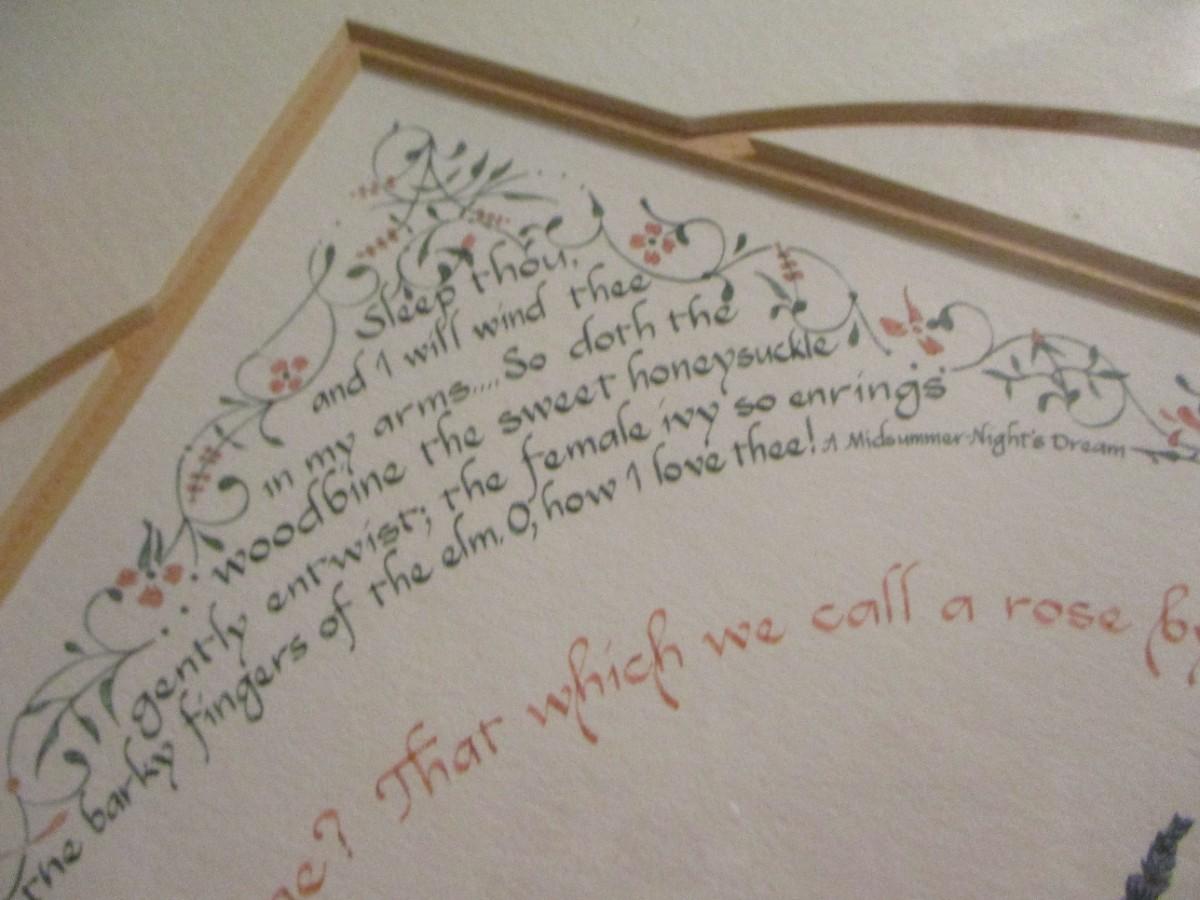 Sleep thou,
and I will wind thee
in my arms....So doth the
woodbine the sweet honeysuckle
gently entwist; the female ivy so enrings
the barky fingers of the elm. O, how I love thee! A Midsummer-Night's Dream
? That which we call a rose